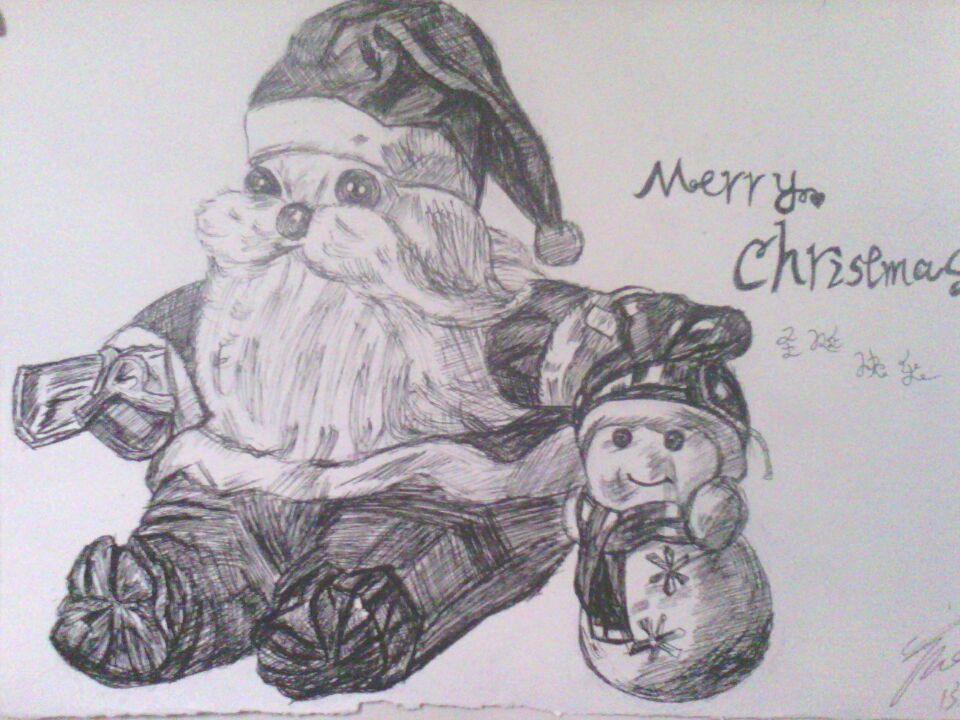 Merry
Christmas
圣诞
快乐